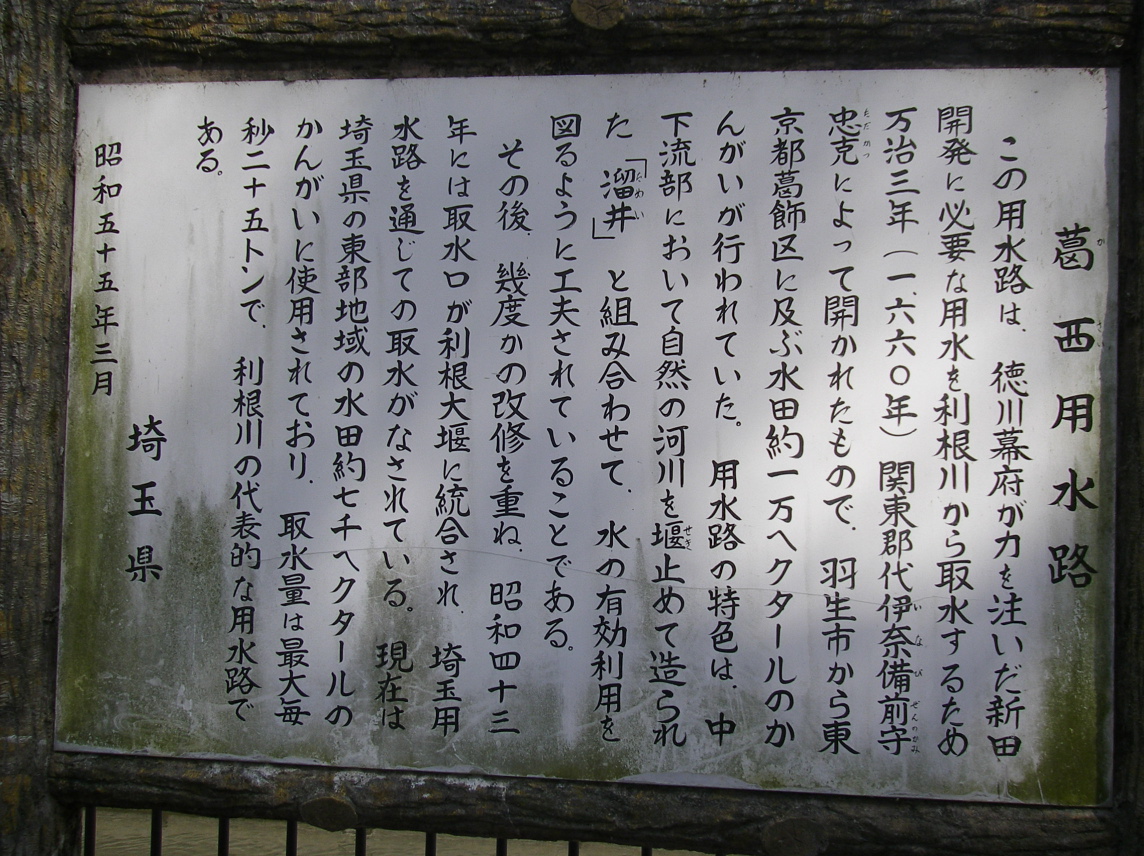 葛西用水路
この用水路は、徳川幕府が力を注いだ新田
開発に必要な用水を利根川から取水するため
万治三年（一、六六〇年）関東郡代伊奈備前守
忠克によって開かれたもので、羽生市から東
京都葛飾区に及ぶ水田約一万ヘクタールのか
んがいが行われていた。用水路の特色は、中
下流部において自然の河川を堰止めて造られ
た「溜井」と組み合わせて、水の有効利用を
図るように工夫されていることである。
その後、幾度かの改修を重ね、昭和四十三
年には取水口が利根大堰に統合され、埼玉用
水路を通じての取水がなされている。現在は
埼玉県の東部地域の水田約七千ヘクタールの
かんがいに使用されており、取水量は最大毎
秒二十五トンで、利根川の代表的な用水路で
ある。
埼玉県
昭和五十五年三月